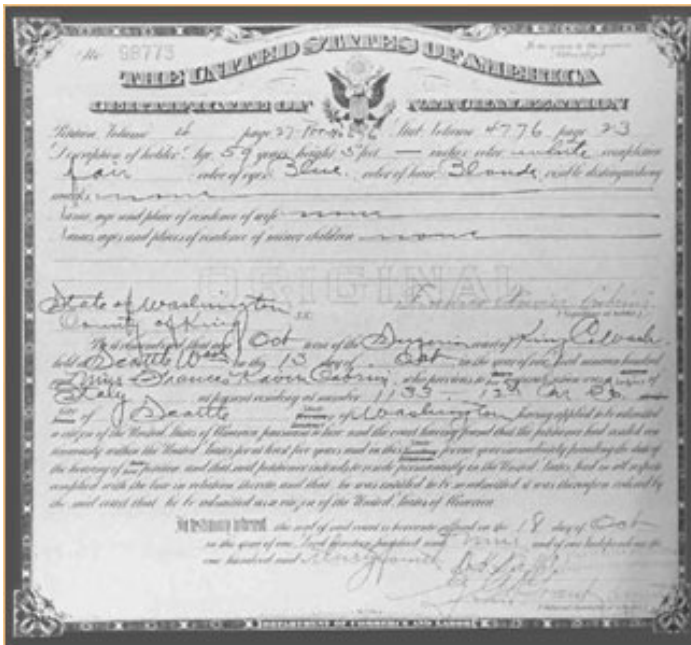 No. 98773
THE UNITED STATES OF AMERICA
CERTIFICATE OF NATURALIZATION
Petition Volume 4 page 27 Stub Volume 4776 page 23
Description of holder: Age 59 years; height 5 feet — inches; color white complexion
fair color of eyes Blue color of hair Blonde visible distinguishing
marks none
Name, age and place of residence of wife none
Names, ages and places of residence of minor children none
ORIGINAL
State of Washington
County of King
Oct term of the Superior court of King Co Wash
held at Seattle Wash on the 13 day of Oct in the year of our Lord nineteen hundred
Miss Frances Xavier Cabrini, who previous to naturalization was a subject of
Italy at present residing at number 1133-12th Av So
of Seattle of Washington having applied to be admitted
a citizen of the United States of America pursuant to law and the court having found that the petitioner had resided con
tinuously within the United States for at least five years and in this for one year immediately preceding the date of
the hearing of petition and that said petitioner intends to reside permanently in the United States, had in all respects
complied with the law in relation thereto and that he was entitled to be so admitted it was thereupon ordered by
the said court that he be admitted as a citizen of the United States of America
In testimony whereof the seal of said court is hereunto affixed on the 18 day of Oct
in the year of our Lord nineteen hundred and nine and of our Independence the
one hundred and
DEPARTMENT OF COMMERCE AND LABOR